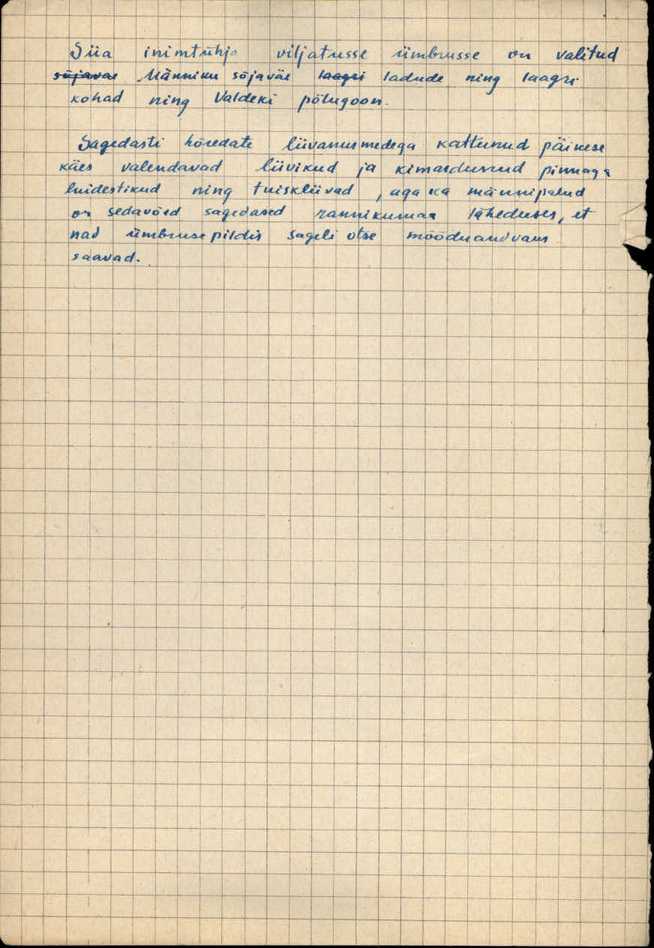 Siia inimtühja viljatusse ümbrusse on valitud
sõjaväe Männiku sõjaväe laagri ladude ning laagri
kohad ning Valdeki põlügoon.
Sagedasti hõredate liivanurmedega kattunud päikese
käes valendavad liivikud ja kimardunud pinnaga
luidestikud ning tuiskliivad, aga ka männipalud
on sedavõrd sagedased rannikumaa läheduses, et
nad ümbruse pildis sageli otse mõõduandvaus
saavad.